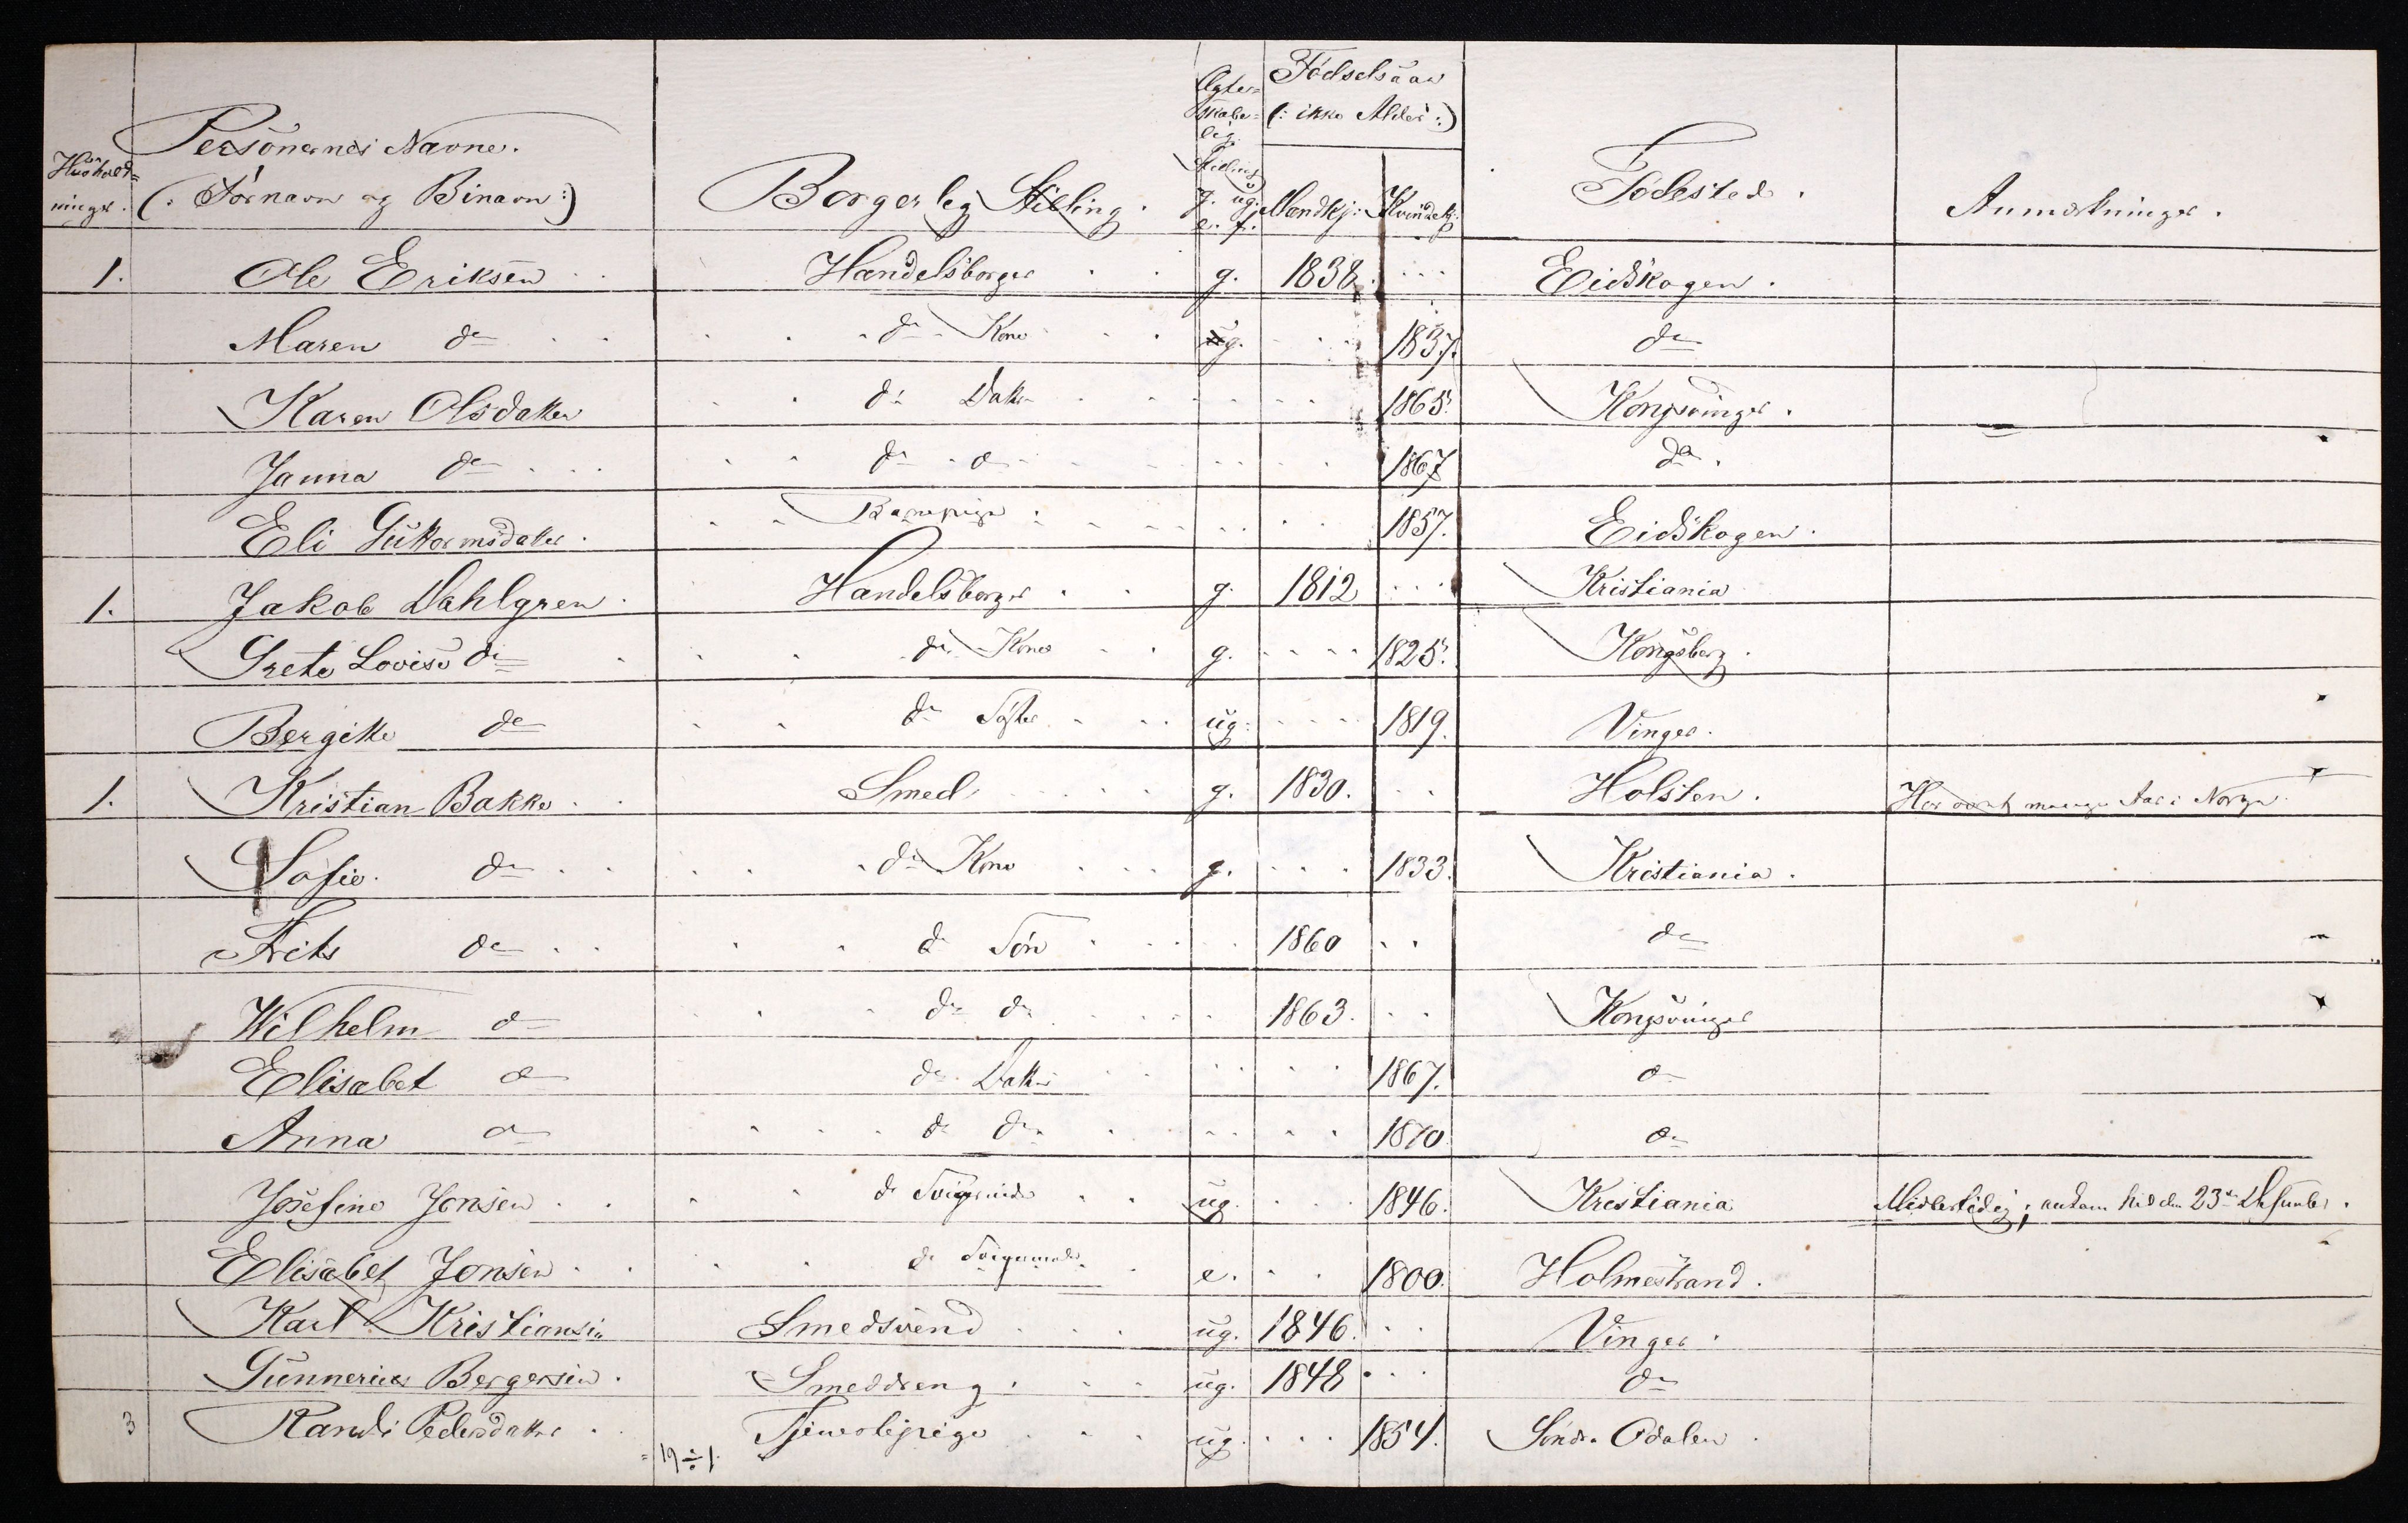 Hushold=
ninger.
Personernes Navne.
(: Fornavn og Binavn :)
Borgerlig Stilling.
Ægte=
skabe=
lig
Stilling
g. ug.
e. f.
Fødselsaar
(: ikke Alder :)
Mandkj: Kvindekj:
Fødested.
Anmærkninger.
1. Ole Eriksen Handelsborger g. 1838. Eidskogen.
Maren do do Kone g. 1837. do
Karen Olsdatter do Datter 1865. Kongsvinger.
Janna do do do 1867 do.
Eli Guttormsdatter. Barnepige 1857. Eidskogen.
1. Jakob Dahlgren Handelsborger g. 1812 Kristiania
Grete Lovise do do Kone g. 1825. Kongsberg.
Bergitte do do Søster ug. 1819. Vinger.
1. Kristian Bakke Smed g. 1830. Holsten. Har vært mange Aar i Norge.
Sofie do do Kone g. 1833. Kristiania.
Frits do do Søn 1860 do
Wilhelm do do do 1863. Kongsvinger
Elisabet do do Datter 1867. do
Anna do do do 1870 do
Josefine Jonsen do Svigerinde ug. 1846. Kristiania Midlertidig; hid den 23de Desember.
Elisabet Jonsen do Svigermoder e. 1800. Holmestrand.
Karl Kristiansen Smedsvend ug. 1846. Vinger.
Gunnerius Bergersen. Smeddreng. ug. 1848 do
3 Randi Pedersdatter Tjenestepige ug. 1854. Søndr. Odalen
= 19 ÷ 1.